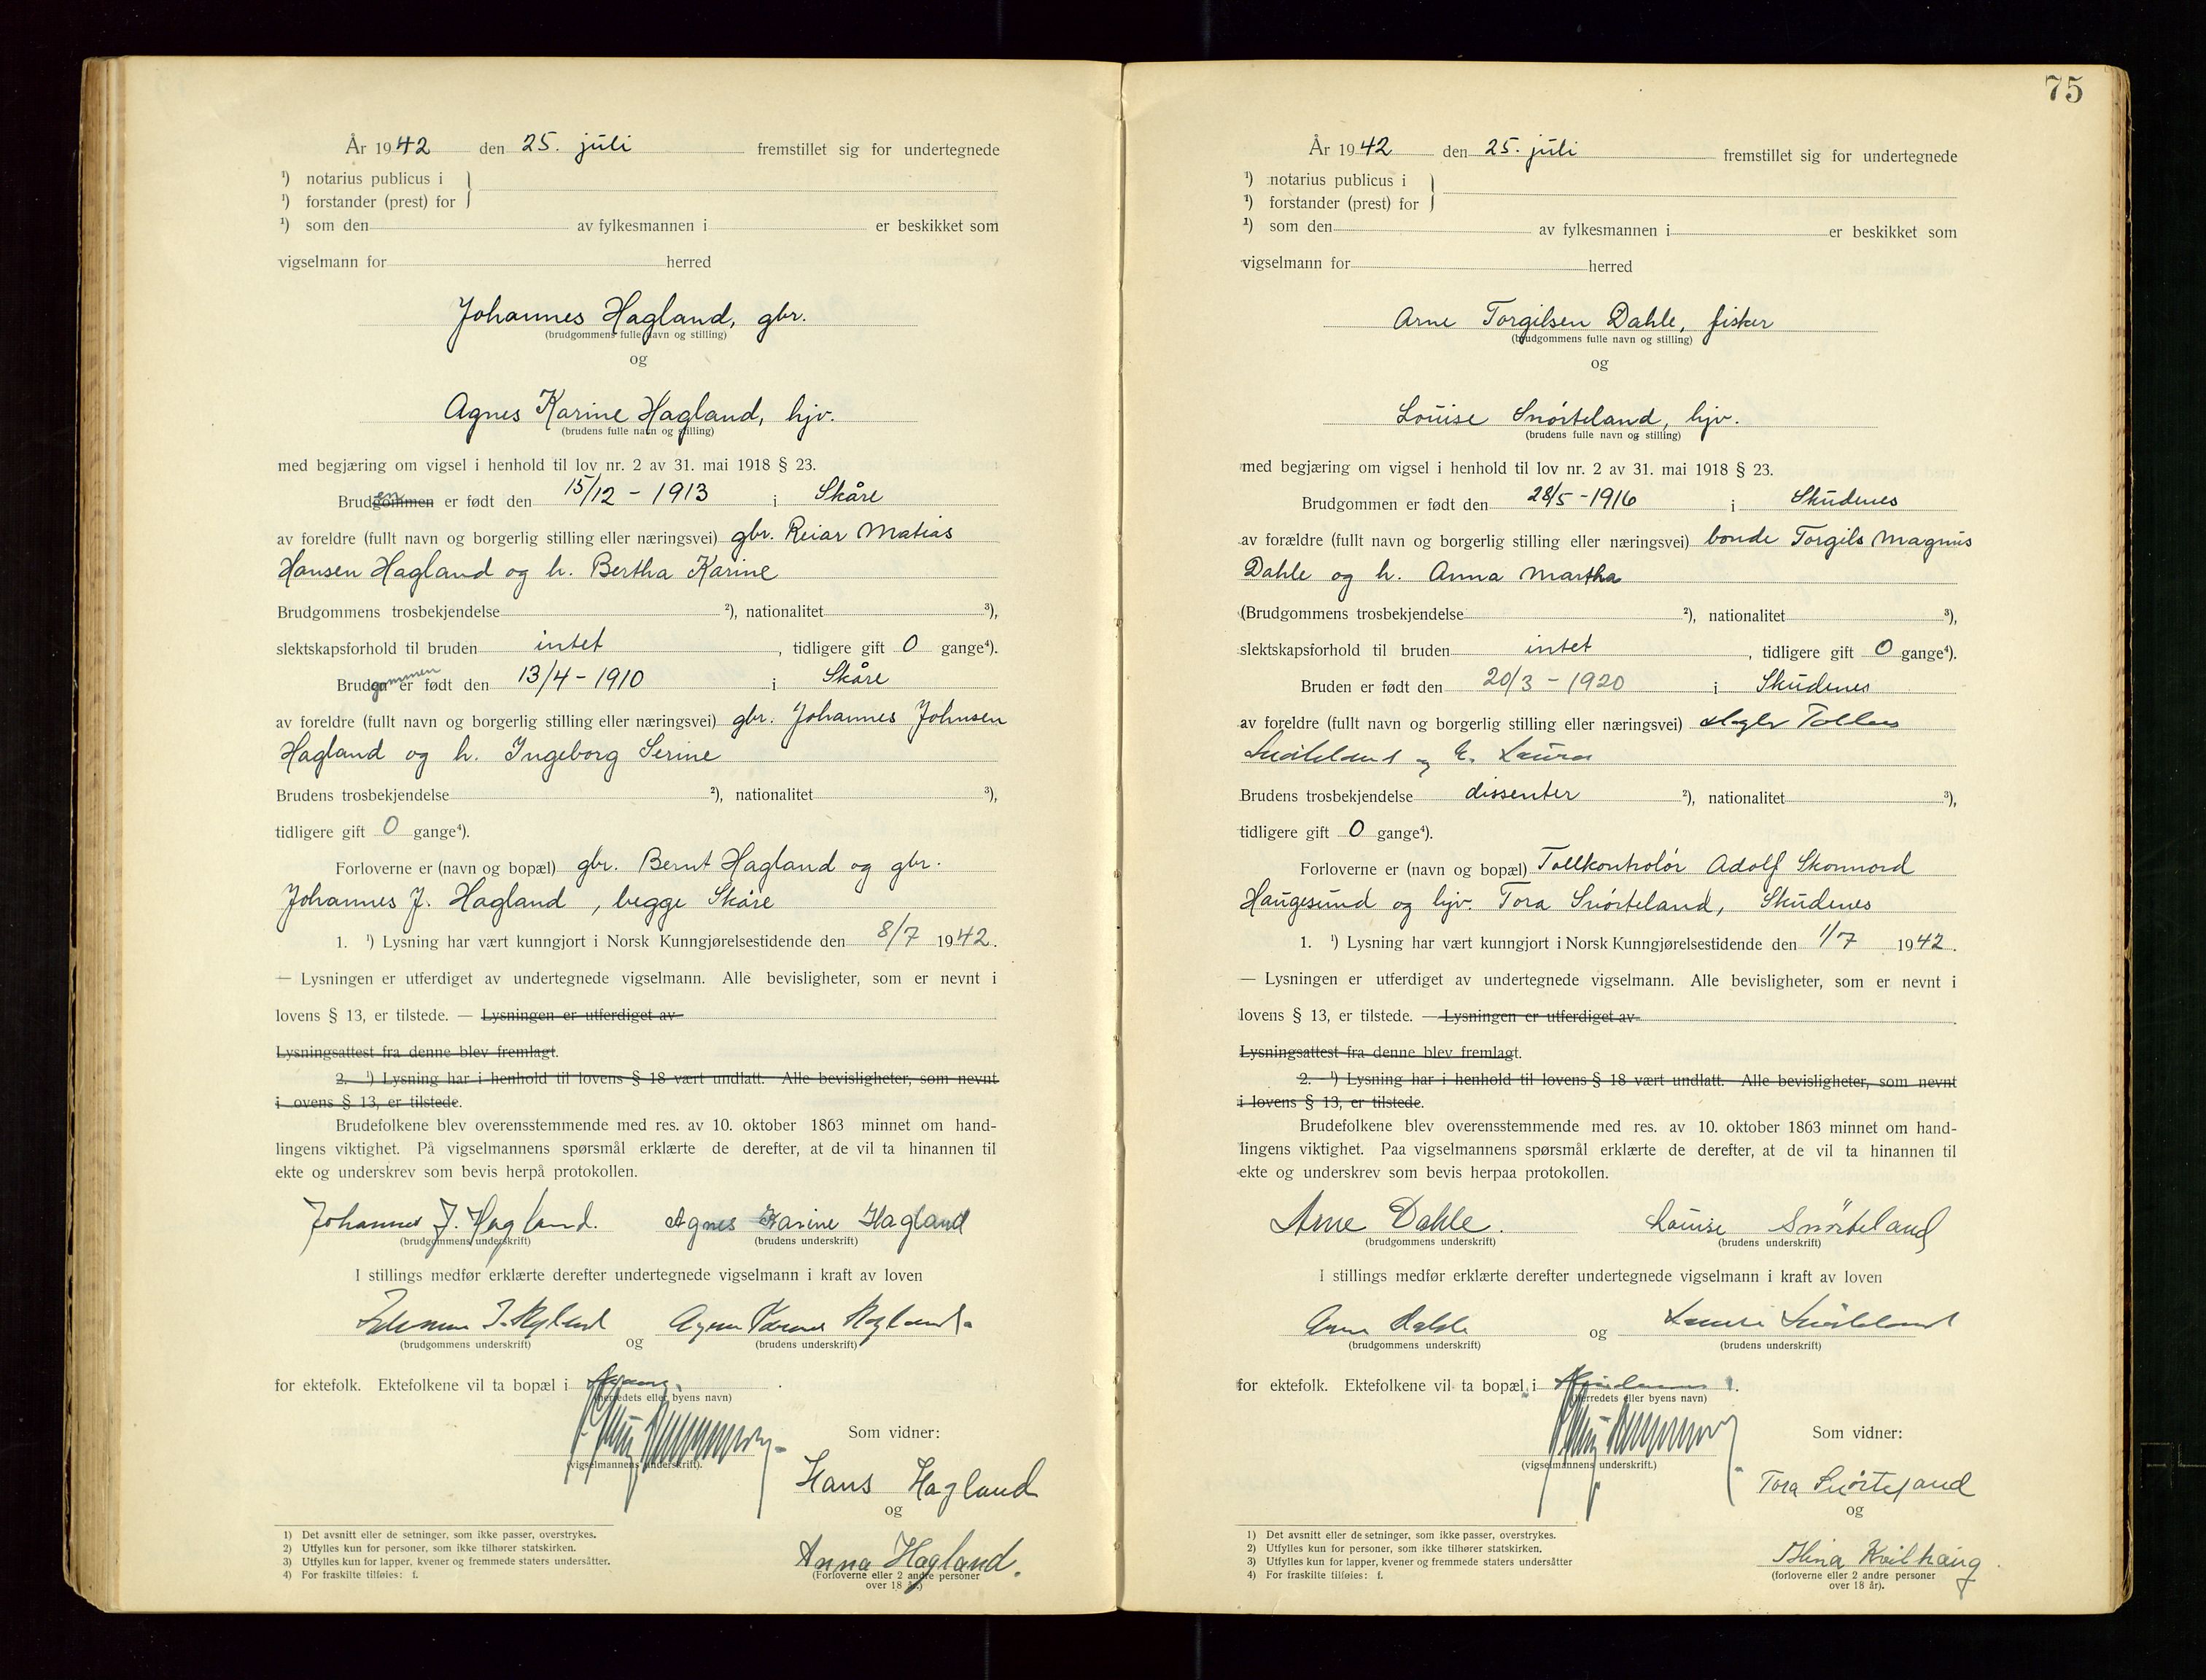 År 1942 den 25. juli fremstillet sig for undertegnede
¹) notarius publicus i
¹) forstander (prest) for
¹) som den av fylkesmannen i er beskikket som
vigselmann for herred
Johannes Hagland, gbr.
(brudgommens fulle navn og stilling)
og
Agnes Karine Hagland, hjv.
(brudens fulle navn og stilling)
med begjæring om vigsel i henhold til lov nr. 2 av 31. mai 1918 § 23.
Brudgommen en er født den 15/12 - 1913 i Skåre
av foreldre (fullt navn og borgerlig stilling eller næringsvei) gbr. Reiar Matias
Hansen Hagland og h. Bertha Karine
Brudgommens trosbekjendelse ²), nationalitet ³),
slektskapsforhold til bruden intet , tidligere gift 0 gange⁴).
Brudgommen er født den 13/4 - 1910 i Skåre
av foreldre (fullt navn og borgerlig stilling eller næringsvei) gbr. Johannes Johnsen
Hagland og h. Ingeborg Serine
Brudens trosbekjendelse ²), nationalitet ³),
tidligere gift 0 gange⁴).
Forloverne er (navn og bopæl) gbr. Bernt Hagland og gbr.
Johannes J. Hagland, begge Skåre
1. ¹) Lysning har vært kunngjort i Norsk Kunngjørelsestidende den 8/7 1942.
— Lysningen er utferdiget av undertegnede vigselmann. Alle bevisligheter, som er nevnt i
lovens § 13, er tilstede. — Lysningen er utferdiget av
Lysningsattest fra denne blev fremlagt.
2. ¹) Lysning har i henhold til lovens § 18 vært undlatt. Alle bevisligheter, som nevnt
i ovens § 13, er tilstede.
Brudefolkene blev overensstemmende med res. av 10. oktober 1863 minnet om hand-
lingens viktighet. På vigselmannens spørsmål erklærte de derefter, at de vil ta hinannen til
ekte og underskrev som bevis herpå protokollen.
Johannes J. Hagland. Agnes Karine Hagland
(brudgommens underskrift) (brudens underskrift)
I stillings medfør erklærte derefter undertegnede vigselmann i kraft av loven
Johannes J. Hagland og Agnes Karine Hagland.
(brudgommens underskrift) (brudens underskrift)
for ektefolk. Ektefolkene vil ta bopæl i
(herredets eller byens navn)
Som vidner:
(vigselmannens underskrift).
Hans Hagland
og
Anna Hagland.
(Forloverne eller 2 andre personer
over 18 år.)
1) Det avsnitt eller de setninger, som ikke passer, overstrykes.
2) Utfylles kun for personer, som ikke tilhører statskirken.
3) Utfylles kun for lapper, kvener og fremmede staters undersåtter.
4) For fraskilte tilføies: f.
75
År 1942 den 25. juli fremstillet sig for undertegnede
¹) notarius publicus i
¹) forstander (prest) for
¹) som den av fylkesmannen i er beskikket som
vigselmann for herred
Arne Torgilsen Dahle, fisker
(brudgommens fulle navn og stilling)
og
Louise Snørteland, hjv.
(brudens fulle navn og stilling)
med begjæring om vigsel i henhold til lov nr. 2 av 31. mai 1918 § 23.
Brudgommen er født den 28/5 - 1916 i Skudenes
av forældre (fullt navn og borgerlig stilling eller næringsvei) bonde Torgils Magnus
Dahle og h. Anna Martha
(Brudgommens trosbekjendelse ²), nationalitet ³),
slektskapsforhold til bruden intet , tidligere gift 0 gange⁴).
Bruden er født den 20/3 - 1920 i Skudenes
av foreldre (fullt navn og borgerlig stilling eller næringsvei)
Snørteland og h. Laura
Brudens trosbekjendelse dissenter ²), nationalitet ³),
tidligere gift 0 gange⁴).
Forloverne er (navn og bopæl) Tollkontrolør Adolf Skonnord
Haugesund og hjv. Tora Snørteland, Skudenes
1. ¹) Lysning har vært kunngjort i Norsk Kunngjørelsestidende den 1/7 1942.
— Lysningen er utferdiget av undertegnede vigselmann. Alle bevisligheter, som er nevnt i
lovens § 13, er tilstede. — Lysningen er utferdiget av
Lysningsattest fra denne blev fremlagt.
2. ¹) Lysning har i henhold til lovens § 18 vært undlatt. Alle bevisligheter, som nevnt
i lovens § 13, er tilstede.
Brudefolkene blev overensstemmende med res. av 10. oktober 1863 minnet om hand-
lingens viktighet. Paa vigselmannens spørsmål erklærte de derefter, at de vil ta hinannen til
ekte og underskrev som bevis herpaa protokollen.
Arne Dahle. Louise Snørteland
(brudgommens underskrift) (brudens underskrift)
I stillings medfør erklærte derefter undertegnede vigselmann i kraft av loven
Arne Dahle og Louise Snørteland
(brudgommens underskrift) (brudens underskrift)
for ektefolk. Ektefolkene vil ta bopæl i Skudenes.
(herredets eller byens navn)
Som vidner:
(vigselmannens underskrift.)
Tora Snørteland
og
(forloverne eller 2 andre personer
over 18 år).
1) Det avsnitt eller de setninger, som ikke passer, overstrykes.
2) Utfylles kun for personer, som ikke tilhører statskirken.
3) Utfylles kun for lapper, kvener og fremmede staters undersåtter
4) For fraskilte tilføies: f.